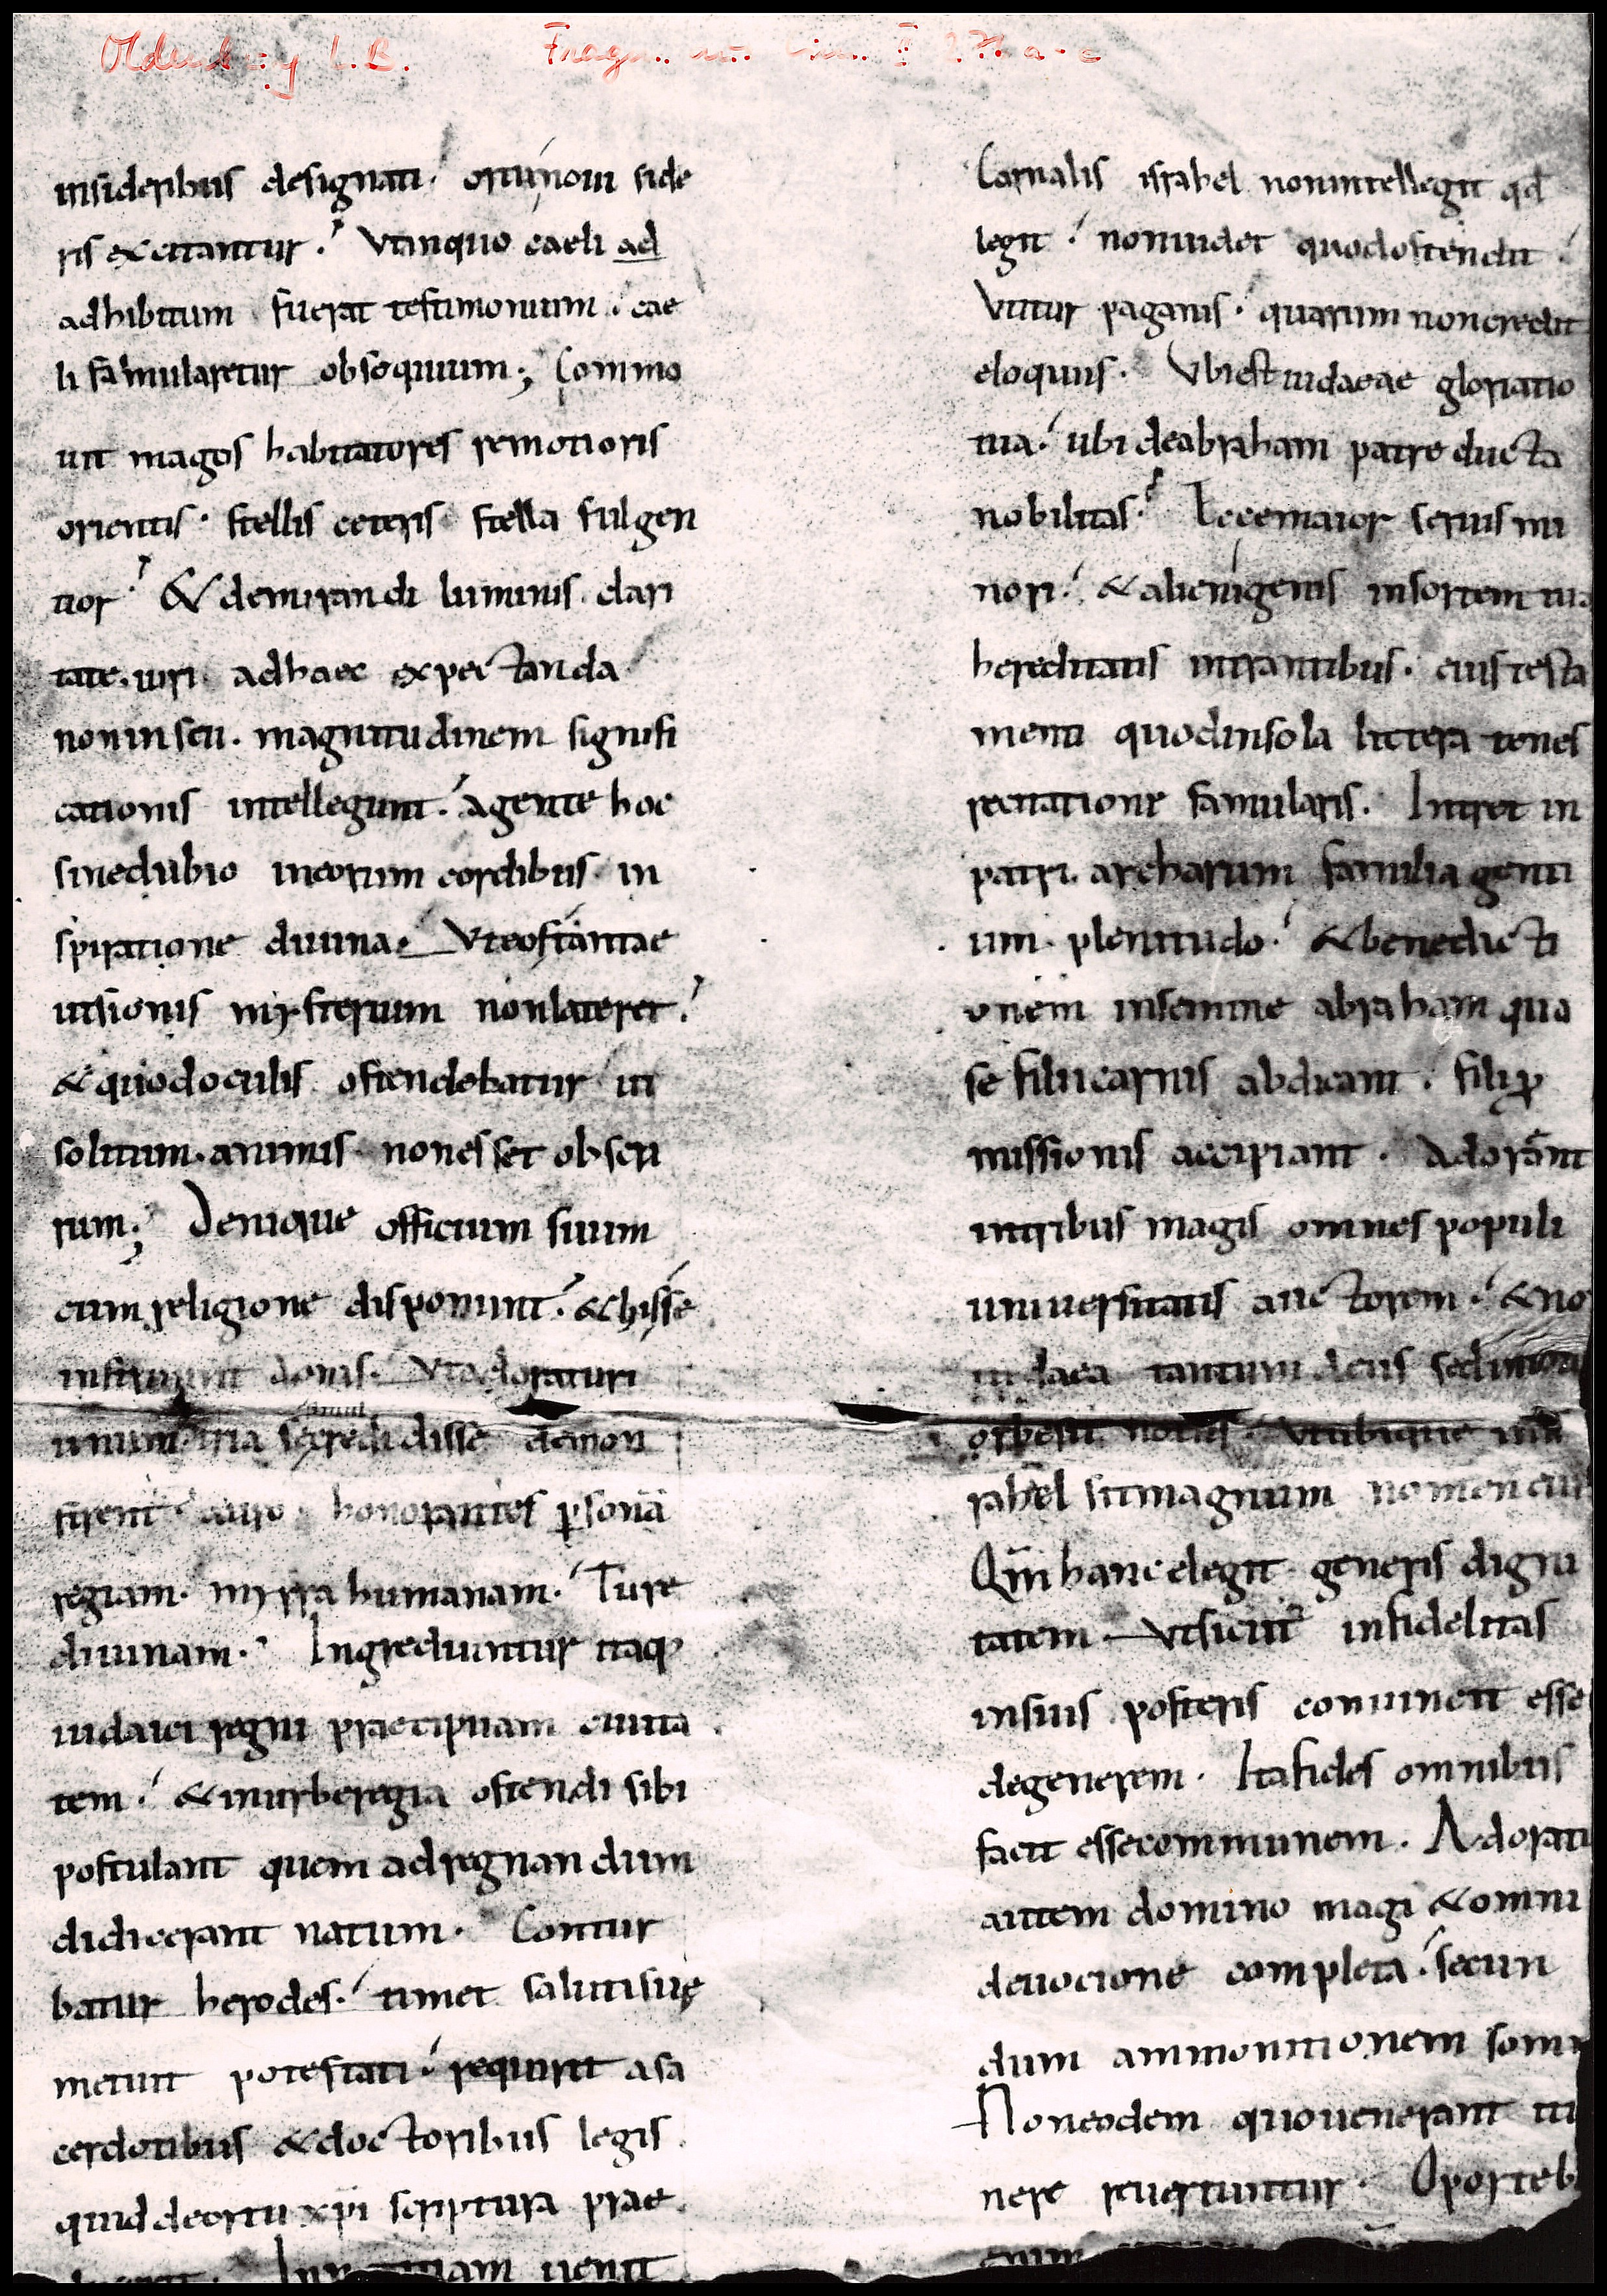 Oldenburg L.B.
Fragm.
insideribus designati. ortu noui side
ris excitantur. Utinquo caeli ad
adhibitum fuerat testimonium. cae
li famularetur obsequium; Commo
uit magos habitatores remotioris
orientis. stellis ceteris stella fulgen
tior. & demirandi luminis clari
tate. uiri adhaec expectanda
noninscii. magnitudinem signifi
cationis intellegunt. agente hoc
sinedubio ineorum cordibus in
spiratione diuina. Uteostantae
uisionis mysterium nonlateret.
& quodoculis ostendebatur in
solitum. animis nonesset obscu
rum; Denique officium suum
cum religione disponunt. & hisse
instruunt donis. Utadoraturi
unum. tria secredidisse demon
strent. auro honorantes psonā
regiam. myrra humanam. Ture
diuinam. Ingrediuntur itaq
iudaici regni praecipuam ciuita
tem. & inurberegia ostendi sibi
postulant quem adregnandum
didicerant natum. Contur
batur herodes. timet salutisuę
metuit potestati. requirit asa
cerdotibus & doctoribus legis
quid deortu xpi scriptura prae
uenit
Carnalis israhel nonintellegit qd
legit. nonuidet quodostendit.
Utitur paginis. quarum noncredit
eloquiis. Ubiest iudaeae gloriatio
tua. ubi deabraham patre ducta
nobilitas. Eccemaior seruis mi
nori. & alienigenis insortem tua
hereditatis intrantibus. eius testa
menti quodinsola littera tenes
recitatione famularis. Intret in
patri archarum familia genti
um plenitudo. & benedicti
onem insemine abraham qua
se filii carnis abdicant. filii p
missionis accipiant. Adorant
intribus magis omnes populi
uniuersitatis auctorem. & no
iudaea tantum deus sed
orbesit notus. Utubique
rahel sitmagnum nomen eius
Qm̄ hanc elegit generis digni
tatem. Utsicut infidelitas
insuis posteris conuincit esse
degenerem. Itafides omnibus
facit essecommunem. Adorati
autem domino magi & omni
deuocione completa. secun
dum ammonitionem somn
Noneodem quouenerant iti
nere reuertuntur. Oporteb
enim